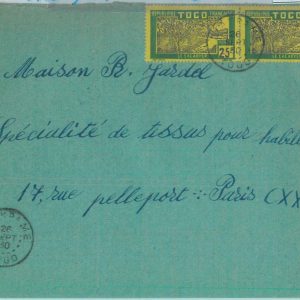 TOGO TOGO
25c
Maison R. Gardel
Spécialité de tissus pour habil
17, rue pelleport ∴ Paris (XX
26
SEPT
30
TOGO